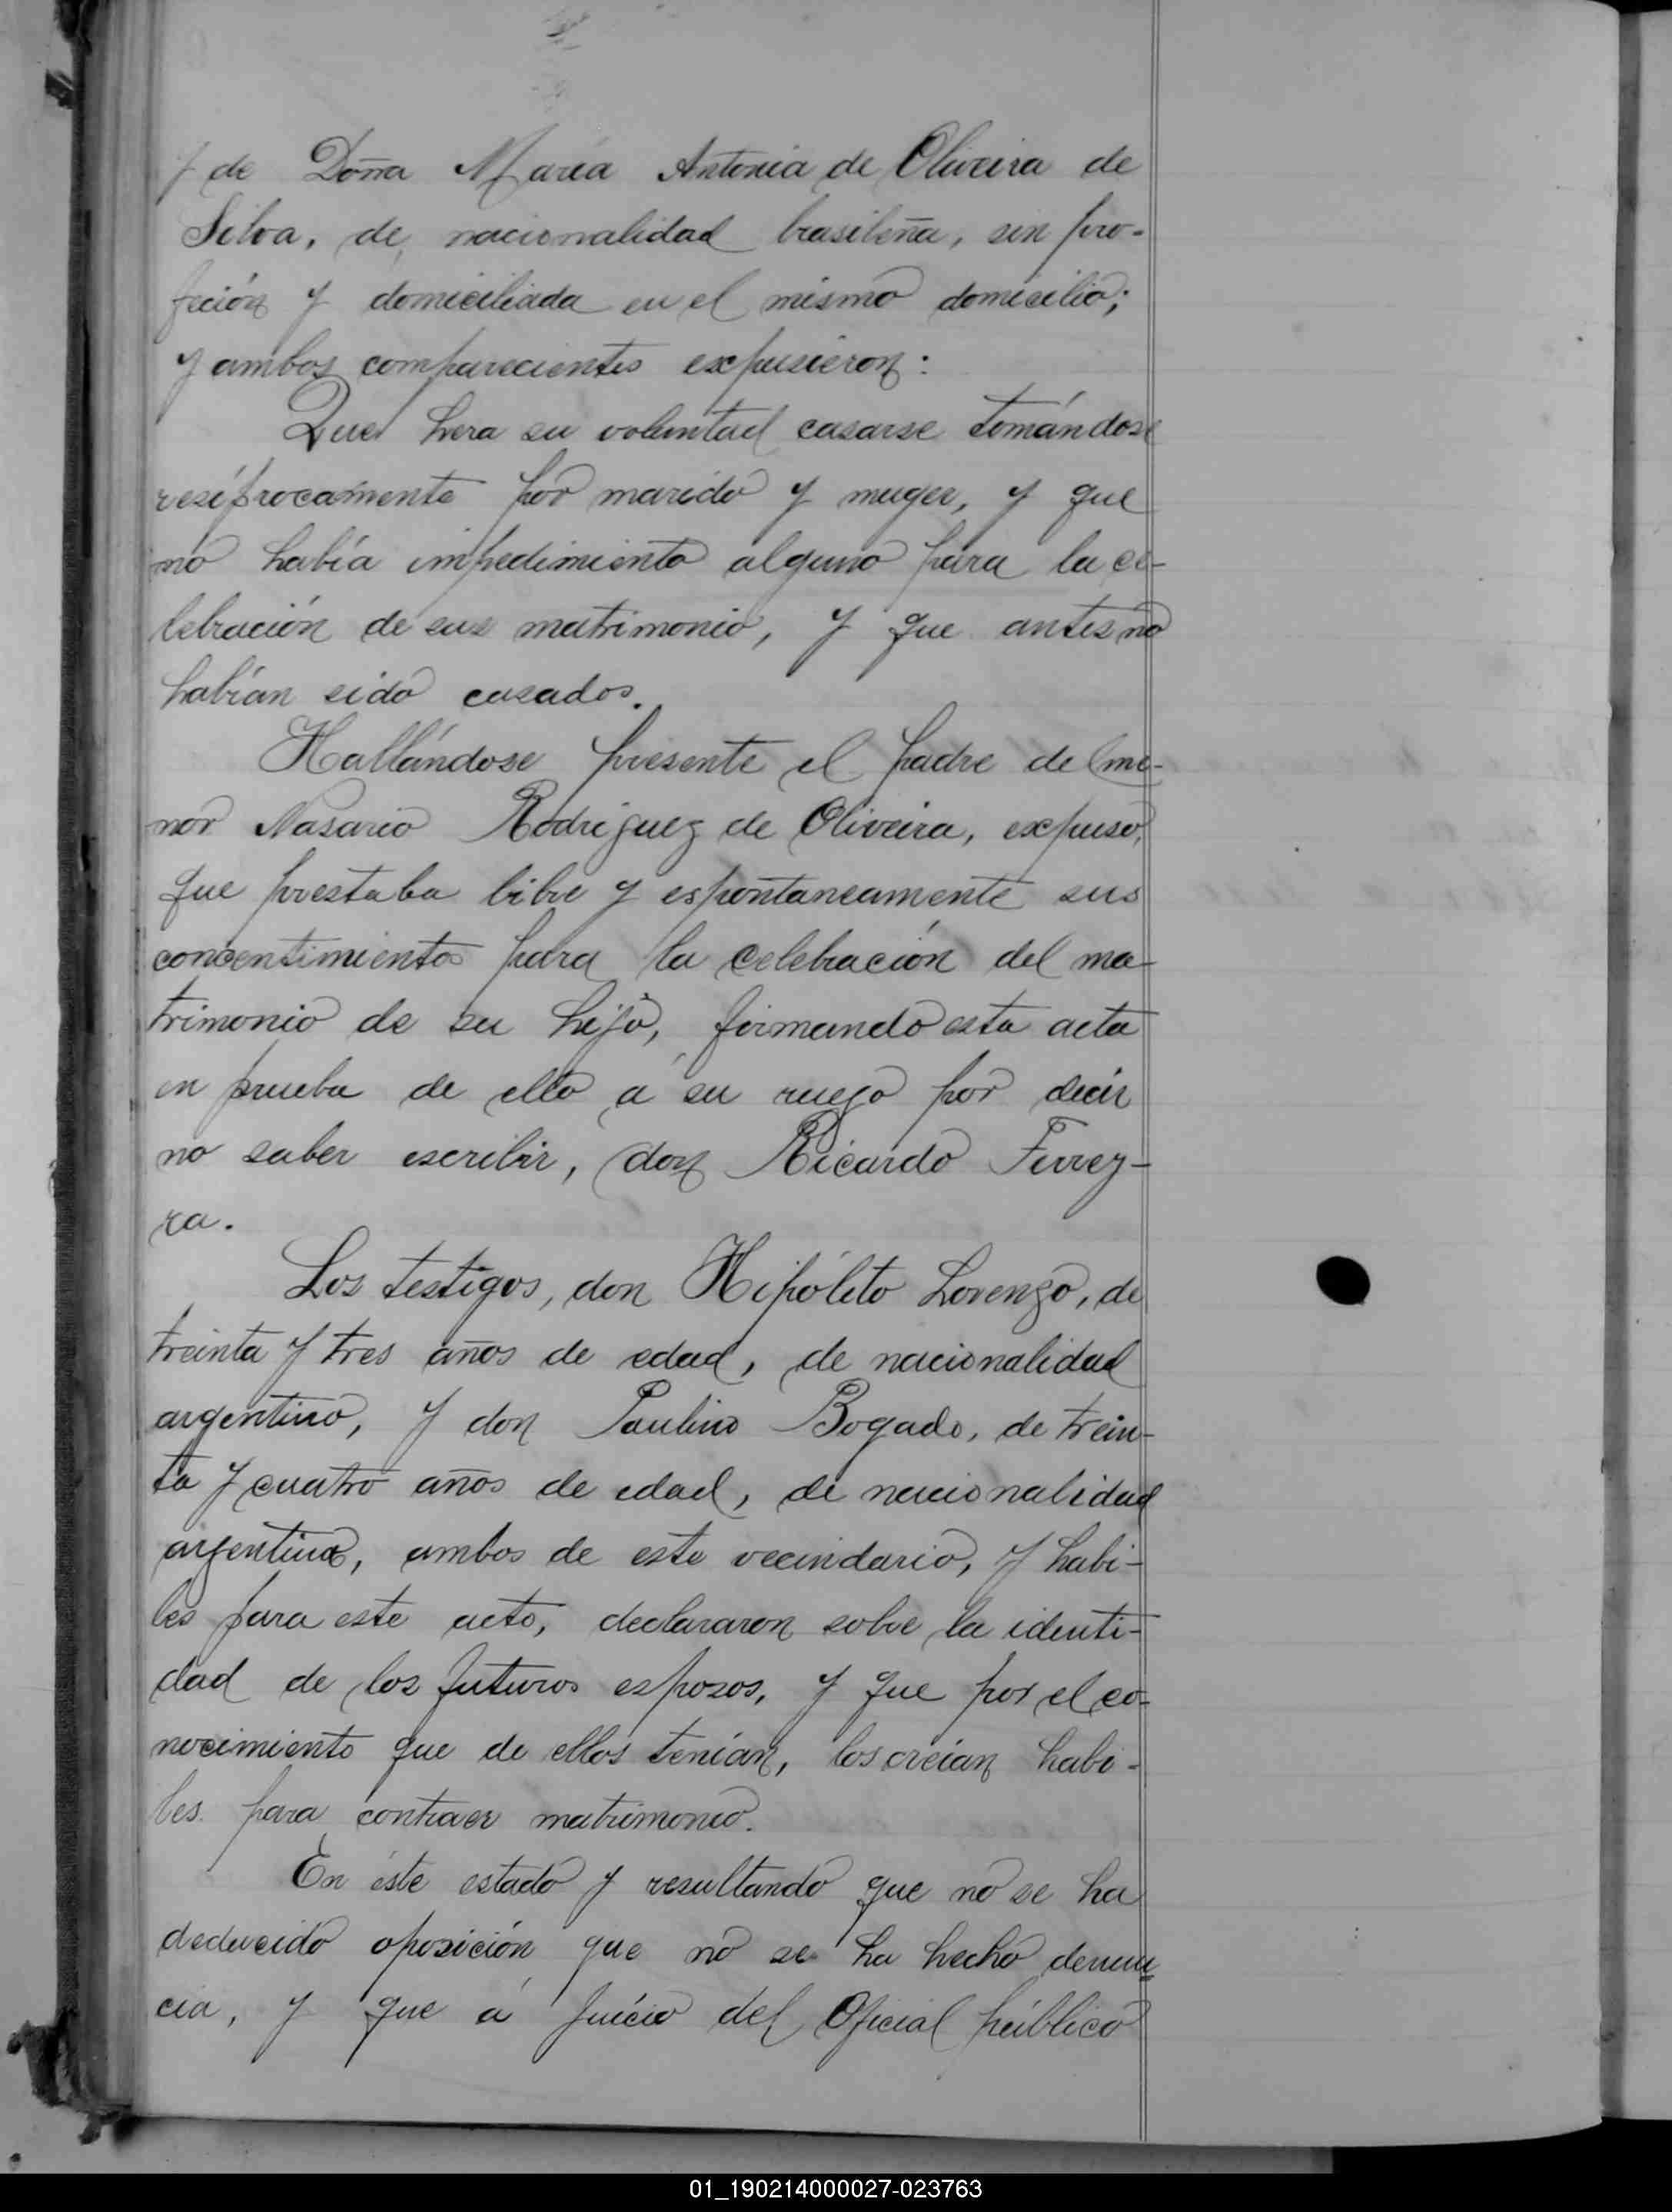 y de Doña María Antonia de Oliveira de
Silva, de nacionalidad brasileña, sin pro-
feción y domiciliada en el mismo domicilio;
y ambos comparecientes expusieron:
Que hera su voluntad casarse tomándose
resíprocamente por marido y muger, y que
no había impedimento alguno para la ce-
lebración de sus matrimonio, y que antes no
habían sido casados.
Hallándose presente el padre del me-
nor Nasario Rodriguez de Oliveira, expuso,
que prestaba libre y espontaneamente sus
concentimientos para la celebración del ma-
trimonio de su hijo, firmando esta acta
en prueba de ello á su ruego por decir
no saber escribir, don Ricardo Ferrey-
ra.
Los testigos, don Hipólito Lorenzo, de
treinta y tres años de edad, de nacionalidad
argentino, y don Paulino Bogado, de trein-
ta y cuatro años de edad, de nacionalidad
argentina, ambos de este vecindario, y habi-
les para este acto, declararon sobre la identi-
dad de los futuros esposos, y que por el co-
nocimiento que de ellos tenían, los creían habi-
les para contraer matrimonio.
En éste estado y resultando que no se ha
deducido oposición que no se ha hecho denun
cia, y que á juício del Oficial público
01_190214000027-023763